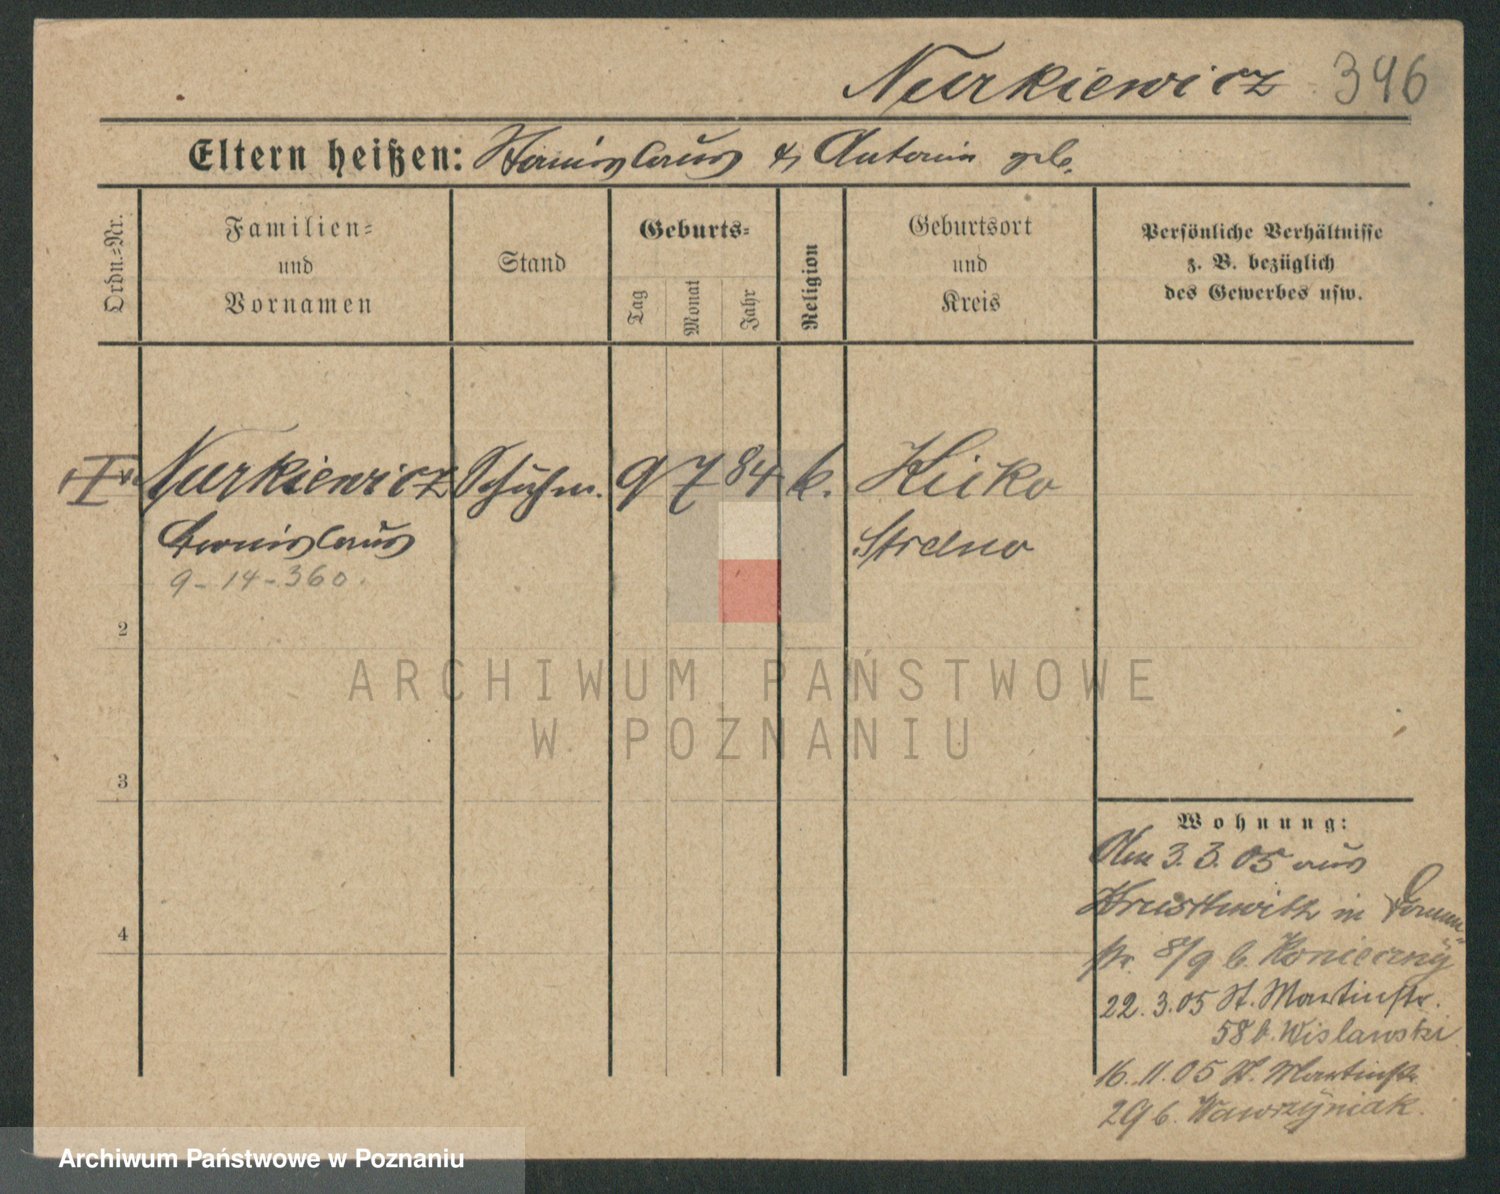 Nurkiewicz 396
Eltern heißen: Stanislaus & Antonin geb.
Ordn.-Nr.
Familien-
und
Vornamen
Stand
Geburts-
Tag
Monat
Jahr
Religion
Geburtsort
und
Kreis
Persönliche Verhältnisse
z. B. bezüglich
des Gewerbes usw.
I Nurkiewicz Schuhm. 9 7 84 k.
Bronislaus Strelno
9-14-360.
2
3
4
Wohnung:
Am 3.3.05 aus
Kruschwitz in
str. 8/9 b. Konieczny
22.3.05 St. Martinstr.
58 b. Wislawski
16.11.05 St. Martinstr.
29 b. Wawrzyniak.
ARCHIWUM PAŃSTWOWE
W POZNANIU
Archiwum Państwowe w Poznaniu